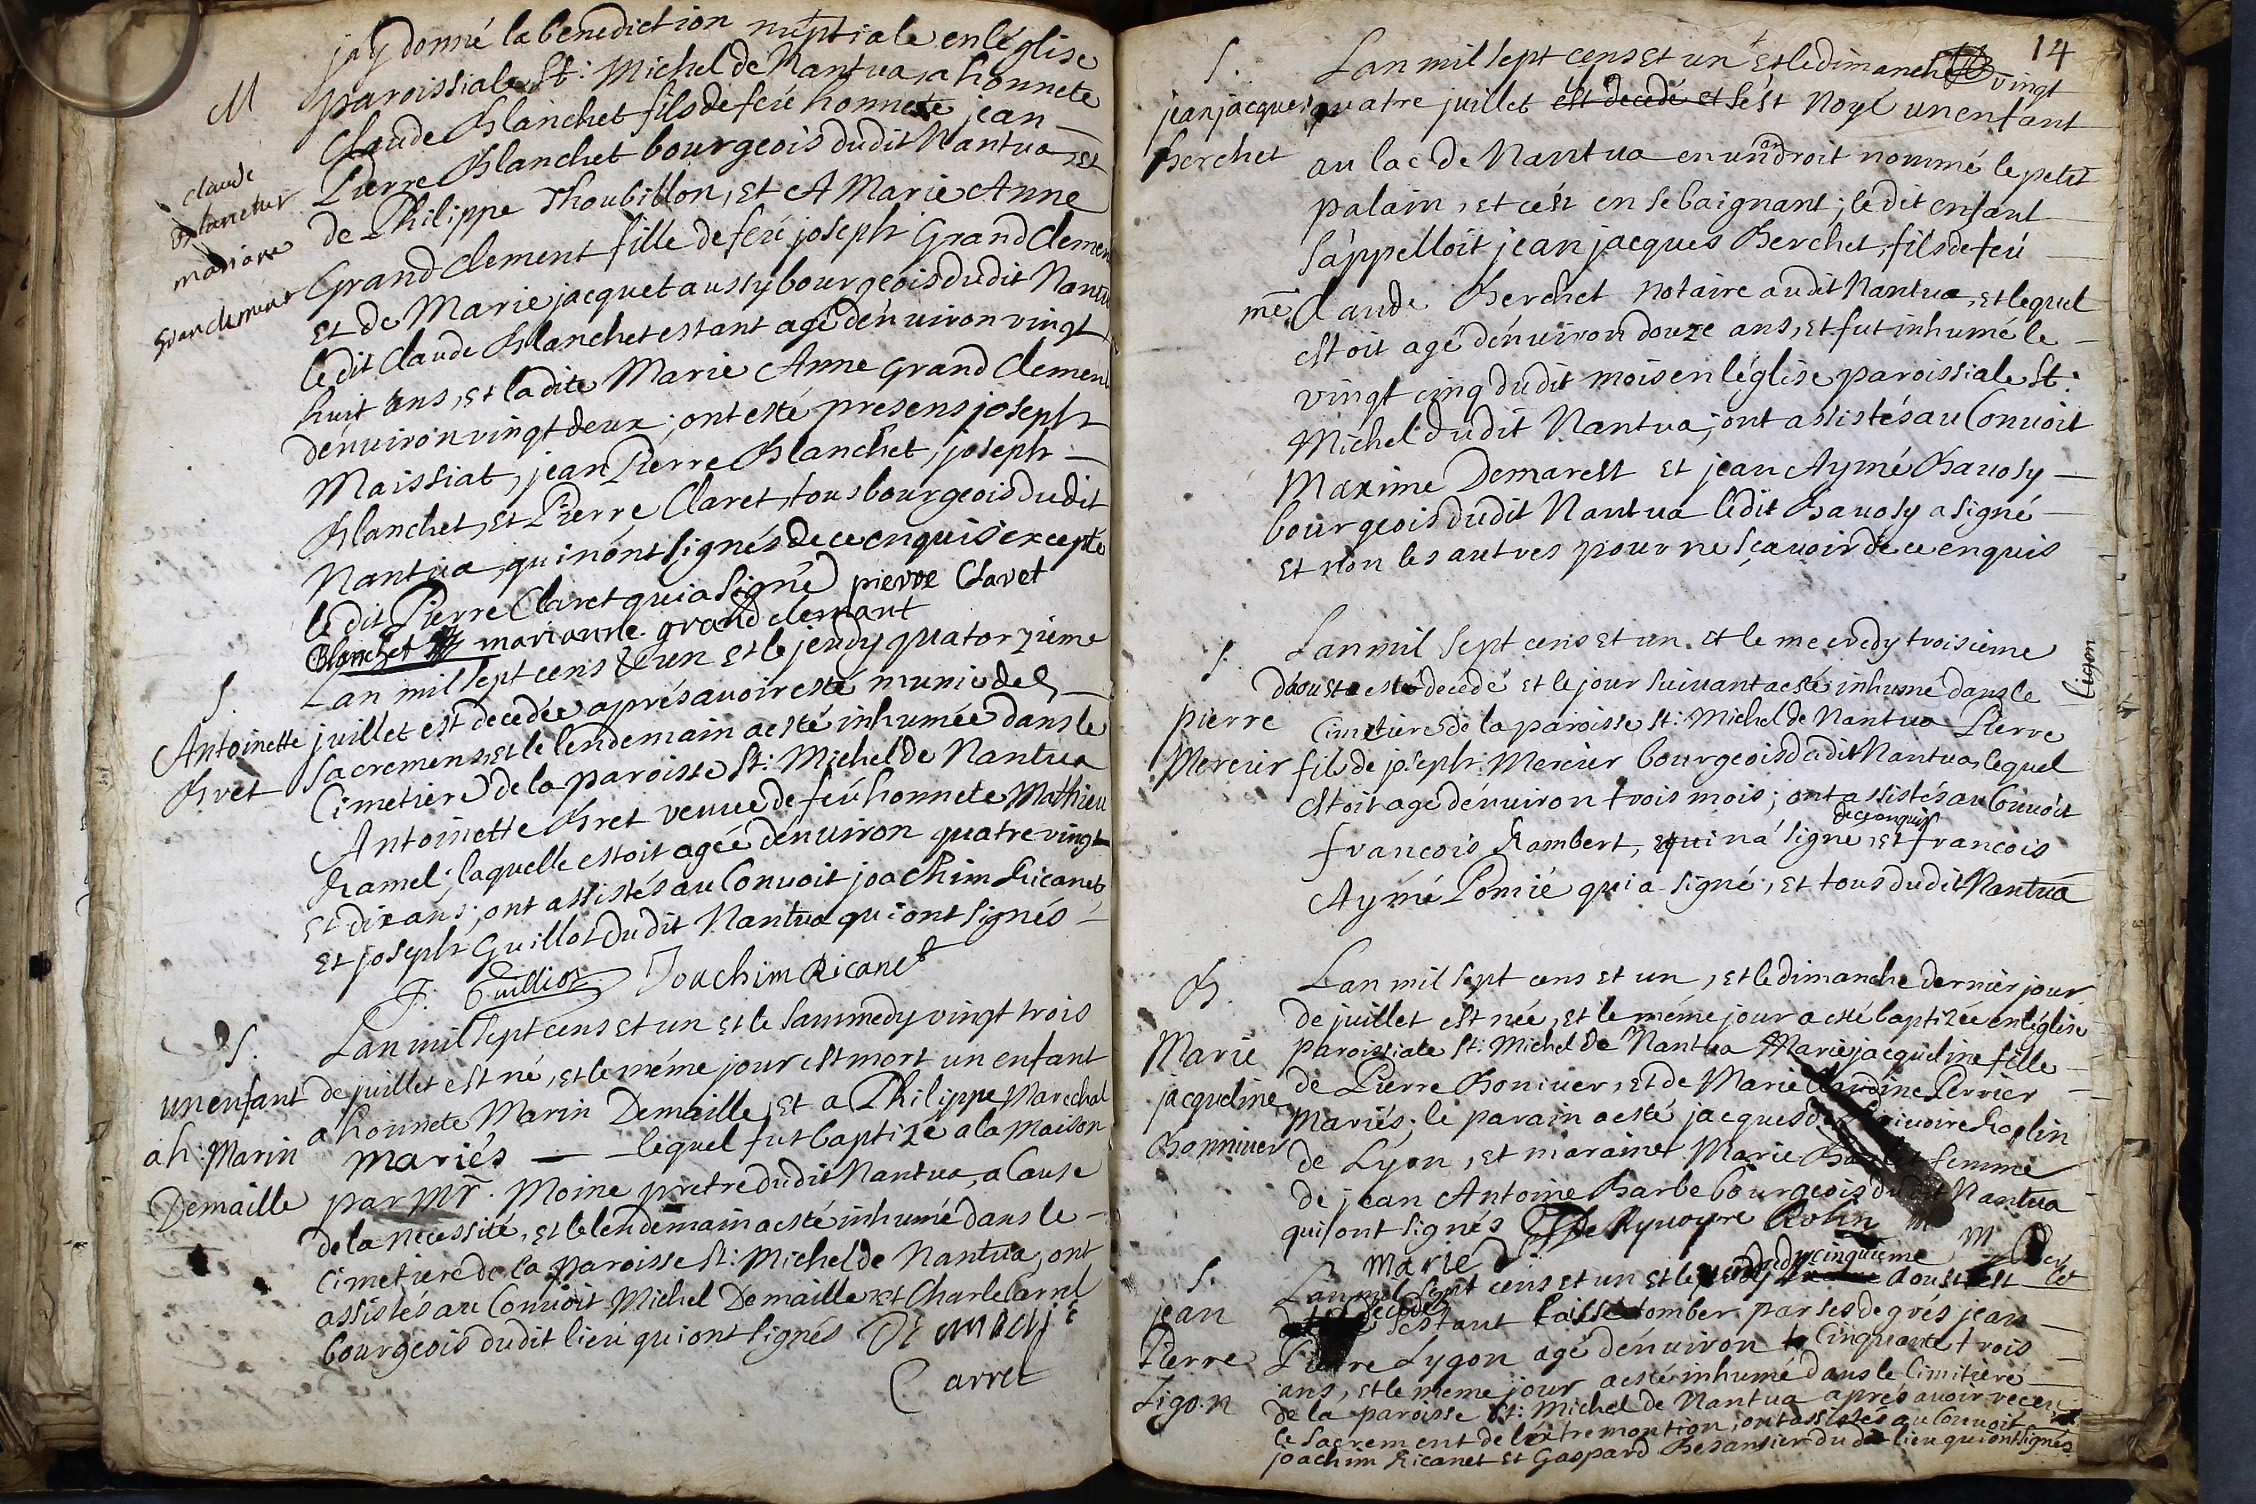 jay donné la benediction nuptiale en léglise
M
paroissiale St: Michel de Nantua, a honnete
Claude Blanchet fils de feú honnete jean
Pierre Blanchet bourgeois dudit Nantua, et
claude
blanchet
mariane
granclement
de Philippe Thoubillon, et A Marie Anne
Grand Clement fille de feú joseph Grand Clement
et de Marie jacquet aussy bourgeois dudit Nantua
ledit Claude Blanchet estant agé dénuiron vingt
huit ans, et ladite Marie Anne Grand Clement
dénuiron vingt deux; ont esté presens joseph
Maissiat, jean Pierre Blanchet, joseph
Blanchet, et Pierre Claret, tous bourgeois dudit
Nantua, qui nónt signés de ce enquis excepté
le dit Pierre Claret qui a signé pierre Claret
Blanchet marianne grand clemant
S.
Antoinette
Bret
Lan mil sept cens et un et le jeudy quatorzieme
juillet est decedée aprés auoir esté munie des
sacremens, et le lendemain a esté inhumée dans le
Cimetiere de la paroisse St: Michel de Nantua
Antoinette Bret veuue de feú honnete Mathieu
Ramel; laquelle estoit agée dénuiron quatre vingt
et dix ans; ont assistés au Conuoit joachim Ricanet
et joseph Guillot dudit Nantua qui ont signés
J: Guilliot Joachim Ricanet
S.
un enfant
a h: Marin
Demaille
Lan mil sept cens et un et le sammedy vingt trois
de juillet est né, et le méme jour est mort un enfant
a honnete Marin Demaille, et a Philippe Marechal
mariés — lequel fut baptizé a la maison
par Mr. Moine pretre dudit Nantua, a Cause
de la necessité, et le lendemain a esté inhumé dans le
Cimetiere de la paroisse St: Michel de Nantua, ont
assistés au Conuoit Michel Demaille et Charle Carrel
bourgeois dudit lieu qui ont signés
Carret
14
S.
jean jacques
Berchet
Lan mil sept cens et un et le dimanche vingt
quatre juillet est decedé et sést noyé un enfant
au lac de Nantua en un androit nommé le petit
palain, et cést en se baignant; ledit enfant
sáppelloit jean jacques Berchet, fils de feú
me Claude Berchet notaire audit Nantua, et lequel
estoit agé dénuiron douze ans, et fut inhumé le
vingt cinq dudit mois en léglise paroissiale St:
Michel dudit Nantua; ont assistés au Conuoit
Maxime Demarest et jean Aymé Bauosy
bourgeois dudit Nantua ledit Bauosy a signé
et non les autres pour ne sçauoir de ce enquis
S.
pierre
Mercier
Lan mil sept cens et un et le mecredy troisieme
dáoust a esté decedé et le jour suiuant a esté inhumé dans le
Ligon
Cimetiere de la paroisse St: Michel de Nantua Pierre
fils de joseph Mercier bourgeois dudit Nantua, lequel
estoit agé dénuiron trois mois; ont assistés au Conuoit
de ce enquis
francois Rambert, qui ná signé, et francois
Aymé Pomié qui a signé, et tous dudit Nantua
B.
Marie
jacqueline
Bonniuer
Lan mil sept cens et un, et le dimanche dernier jour
de juillet est née, et le méme jour a esté baptizée en léglise
paroissiale St: Michel de Nantua Marie jacqueline fille
de Pierre Boniuer, et de Marie Perrier
Mariés; le parain a esté jacques de Roolin
de Lyon, et maraine Marie femme
de jean Antoine Barbe bourgeois dudit Nantua
qui ont signés De Ryuoyre Rolin
Marie
S.
jean
Pierre
Ligon
Lan mil sept cens et un et le cinquieme aoust est
decedé sestant laissé tomber par ses degrés jean
Pierre Lygon agé dénuiron Cinquante trois
ans, et le meme jour a esté inhumé dans le Cimitiere
de la paroisse St: Michel de Nantua aprés auoir receu
le sacrement de lextremontion, ont assistés au Conuoit
joachim Ricanet et Gaspard Besansier dudit lieu qui ont signés